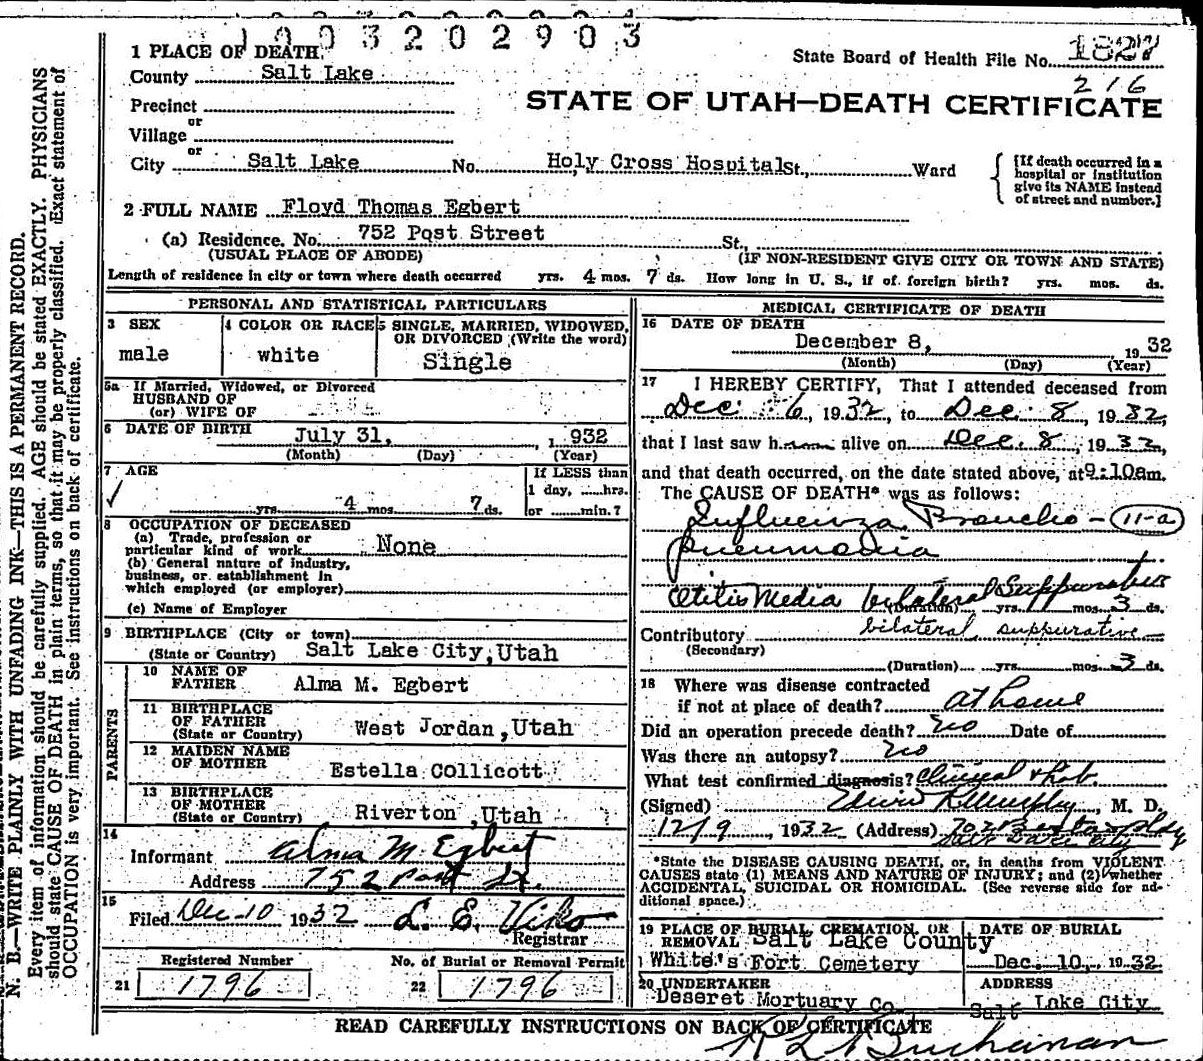 1003202903
1 PLACE OF DEATH
State Board of Health File No. 1827
County Salt Lake
216
Precinct
STATE OF UTAH—DEATH CERTIFICATE
or
Village
or
City Salt Lake No. Holy Cross Hospital St., Ward
[If death occurred in a
hospital or institution
give its NAME instead
of street and number.]
2 FULL NAME Floyd Thomas Egbert
(a) Residence. No. 752 Post Street St.,
(USUAL PLACE OF ABODE) (IF NON-RESIDENT GIVE CITY OR TOWN AND STATE)
Length of residence in city or town where death occurred yrs. 4 mos. 7 ds. How long in U. S., if of foreign birth? yrs. mos. ds.
PERSONAL AND STATISTICAL PARTICULARS
3 SEX
male
4 COLOR OR RACE
white
5 SINGLE, MARRIED, WIDOWED,
OR DIVORCED (Write the word)
Single
5a If Married, Widowed, or Divorced
HUSBAND OF
(or) WIFE OF
6 DATE OF BIRTH July 31, 1932
(Month) (Day) (Year)
7 AGE
yrs. 4 mos. 7 ds.
If LESS than
1 day, ......hrs.
or ......min.?
8 OCCUPATION OF DECEASED
(a) Trade, profession or
particular kind of work None
(b) General nature of industry,
business, or establishment in
which employed (or employer)
(c) Name of Employer
9 BIRTHPLACE (City or town)
(State or Country) Salt Lake City, Utah
PARENTS
10 NAME OF
FATHER Alma M. Egbert
11 BIRTHPLACE
OF FATHER
(State or Country) West Jordan, Utah
12 MAIDEN NAME
OF MOTHER
Estella Collicott
13 BIRTHPLACE
OF MOTHER
(State or Country) Riverton, Utah
14
Informant Alma M. Egbert
Address 752 Post St.
15
Filed Dec-10 1932 L. E. Viko
Registrar
Registered Number
21 1796
No. of Burial or Removal Permit
22 1796
MEDICAL CERTIFICATE OF DEATH
16 DATE OF DEATH
December 8, 1932
(Month) (Day) (Year)
17 I HEREBY CERTIFY, That I attended deceased from
Dec. 6 1932, to Dec. 8 1932,
that I last saw him alive on Dec. 8, 1932,
and that death occurred, on the date stated above, at 9:10am.
The CAUSE OF DEATH* was as follows:
Influenza, Broncho- 11-a
pneumonia
Otitis Media bilateral Suppurative
(Duration) yrs. mos. 3 ds.
Contributory bilateral suppurative
(Secondary)
(Duration) yrs. mos. 3 ds.
18 Where was disease contracted
if not at place of death? at home
Did an operation precede death? no Date of
Was there an autopsy? no
What test confirmed diagnosis? Clinical & Lab.
(Signed) , M. D.
12/9, 1932 (Address) 702
Salt Lake City
*State the DISEASE CAUSING DEATH, or, in deaths from VIOLENT
CAUSES state (1) MEANS AND NATURE OF INJURY; and (2) whether
ACCIDENTAL, SUICIDAL OR HOMICIDAL. (See reverse side for ad-
ditional space.)
19 PLACE OF BURIAL, CREMATION, OR
REMOVAL Salt Lake County
White's Fort Cemetery
DATE OF BURIAL
Dec. 10, 1932
20 UNDERTAKER
Deseret Mortuary Co.
ADDRESS
Salt Lake City
READ CAREFULLY INSTRUCTIONS ON BACK OF CERTIFICATE
Buchanan
N. B.—WRITE PLAINLY WITH UNFADING INK—THIS IS A PERMANENT RECORD.
Every item of information should be carefully supplied. AGE should be stated EXACTLY. PHYSICIANS
should state CAUSE OF DEATH in plain terms, so that it may be properly classified. Exact statement of
OCCUPATION is very important. See instructions on back of certificate.